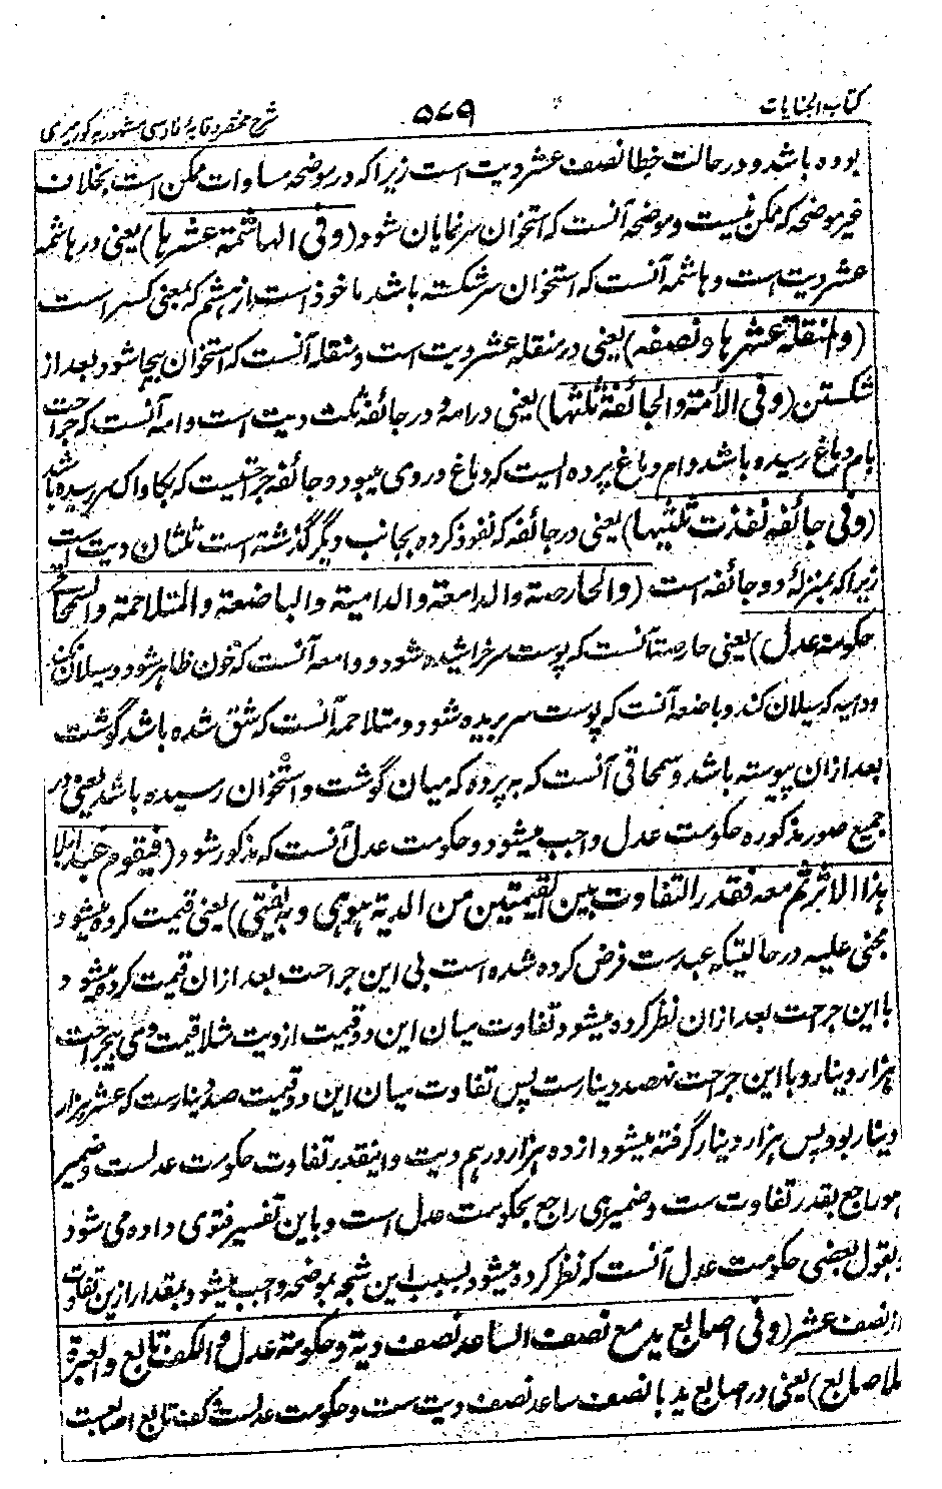 کتاب الجنایات
۵۷۹
شرح مختصر وقایه فارسی مشهور به کور میری
بوده باشد و در حالت خطا نصف عشر دیت است زیرا که در موضحه مساوات ممکن است بخلاف
غیر موضحه که ممکن نیست و موضحه آنست که استخوان سر نمایان شود (وفی الهاشمة عشرها) یعنی در هاشمه
عشر دیت است و هاشمه آنست که استخوان سر شکسته باشد ماخوذ است از هشم که بمعنی کسر است
(والمنقلة عشرها ونصفه) یعنی در منقله عشر دیت است و منقله آنست که استخوان بیجا شود بعد از
شکستن (وفی الآمة والجائفة ثلثها) یعنی در آمه و در جائفه ثلث دیت است و آمه آنست که جراحت
بام دماغ رسیده باشد و ام دماغ پرده ایست که دماغ در وی میبود و جائفه جراحتیست که بکاواک سر رسیده باشد
(وفی جائفة نفذت ثلثیها) یعنی در جائفه که نفوذ کرده بجانب دیگر گذشته است ثلثان دیت است
زیرا که بمنزله دو جائفه است (والحارصة والدامعة والدامیة والباضعة والمتلاحمة والسمحاق
حکومة عدل) یعنی حارصه آنست که پوست سر خراشیده شود و دامعه آنست که خون ظاهر شود و سیلان نکند
و دامیه که سیلان کند و باضعه آنست که پوست سر بریده شود و متلاحمه آنست که شق شده باشد گوشت
بعد ازان پیوسته باشد و سمحاق آنست که به پرده که میان گوشت و استخوان رسیده باشد یعنی در
جمیع صور مذکوره حکومت عدل واجب میشود و حکومت عدل آنست که مذکور شود (فیقوم عبدا بلا
هذا الاثر ثم معه فقدر التفاوت بین القیمتین من الدیة هو هی وبه یفتی) یعنی قیمت کرده میشود
مجنی علیه در حالتیکه عبد ست فرض کرده شده است بی این جراحت بعد ازان قیمت کرده میشود
با این جرحت بعد ازان نظر کرده میشود تفاوت میان این دو قیمت از دیت مثلا قیمت وی بیجراحت
هزار دینار و با این جرحت نهصد دینارست پس تفاوت میان این دو قیمت صد دینارست که عشر هزار
دینار بود پس هزار دینار گرفته میشود از ده هزار درهم دیت و اینقدر تفاوت حکومت عدلست و ضمیر
هو راجع بقدر تفاوت ست و ضمیر هی راجع بحکومت عدل است و باین تفسیر فتوی داده می شود
و بقول بعضی حکومت عدل آنست که نظر کرده میشود بسبب این شجه بموضحه واجب میشود بمقدار ازین تفاوت
از نصف عشر (وفی اصابع ید مع نصف الساعد نصف دیة وحکومة عدل والکف تابع والعبرة
للاصابع) یعنی در اصابع ید با نصف ساعد نصف دیت ست و حکومت عدلست و کف تابع اصابعست